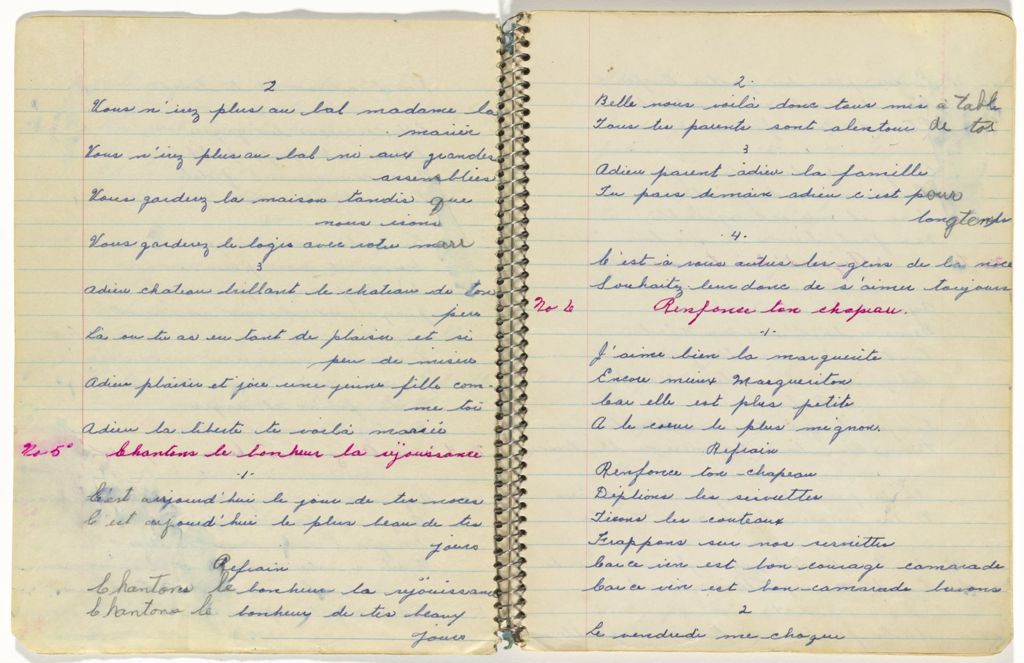 2
Vous n'irez plus au bal madame la
mariée
Vous n'irez plus au bal ni aux grandes
assemblées
Vous garderez la maison tandis que
nous irons
Vous garderez le logis avec votre mari
3
Adieu chateau brillant le chateau de ton
père
Là ou tu as eu tant de plaisir et si
peu de misère
Adieu plaisir et joie une jeune fille com-
me toi
Adieu la liberté te voilà mariée
No 5° Chantons le bonheur la réjouissance
1
C'est aujourd'hui le jour de tes noces
C'est aujourd'hui le plus beau de tes
jours
Refrain
Chantons le bonheur la réjouissance
Chantons le bonheur de tes beaux
jours
2.
Belle nous voilà donc tous mis à table
Tous tes parents sont alentour de toi
3
Adieu parent adieu la famille
Tu pars demain adieu c'est pour
longtemps
.4.
C'est à vous autres les gens de la noce
Souhaitez-leur donc de s'aimer toujours
No 6 Renfonce ton chapeau.
.1.
J'aime bien la marguerite
Encore mieux Margueriton
Car elle est plus petite
A le coeur le plus mignon.
Refrain
Renfonce ton chapeau
Déplions les serviettes
Tirons les couteaux
Frappons sur nos serviettes
Car ce vin est bon courage camarade
Car ce vin est bon camarade buvons
2
Le vendredi me choque